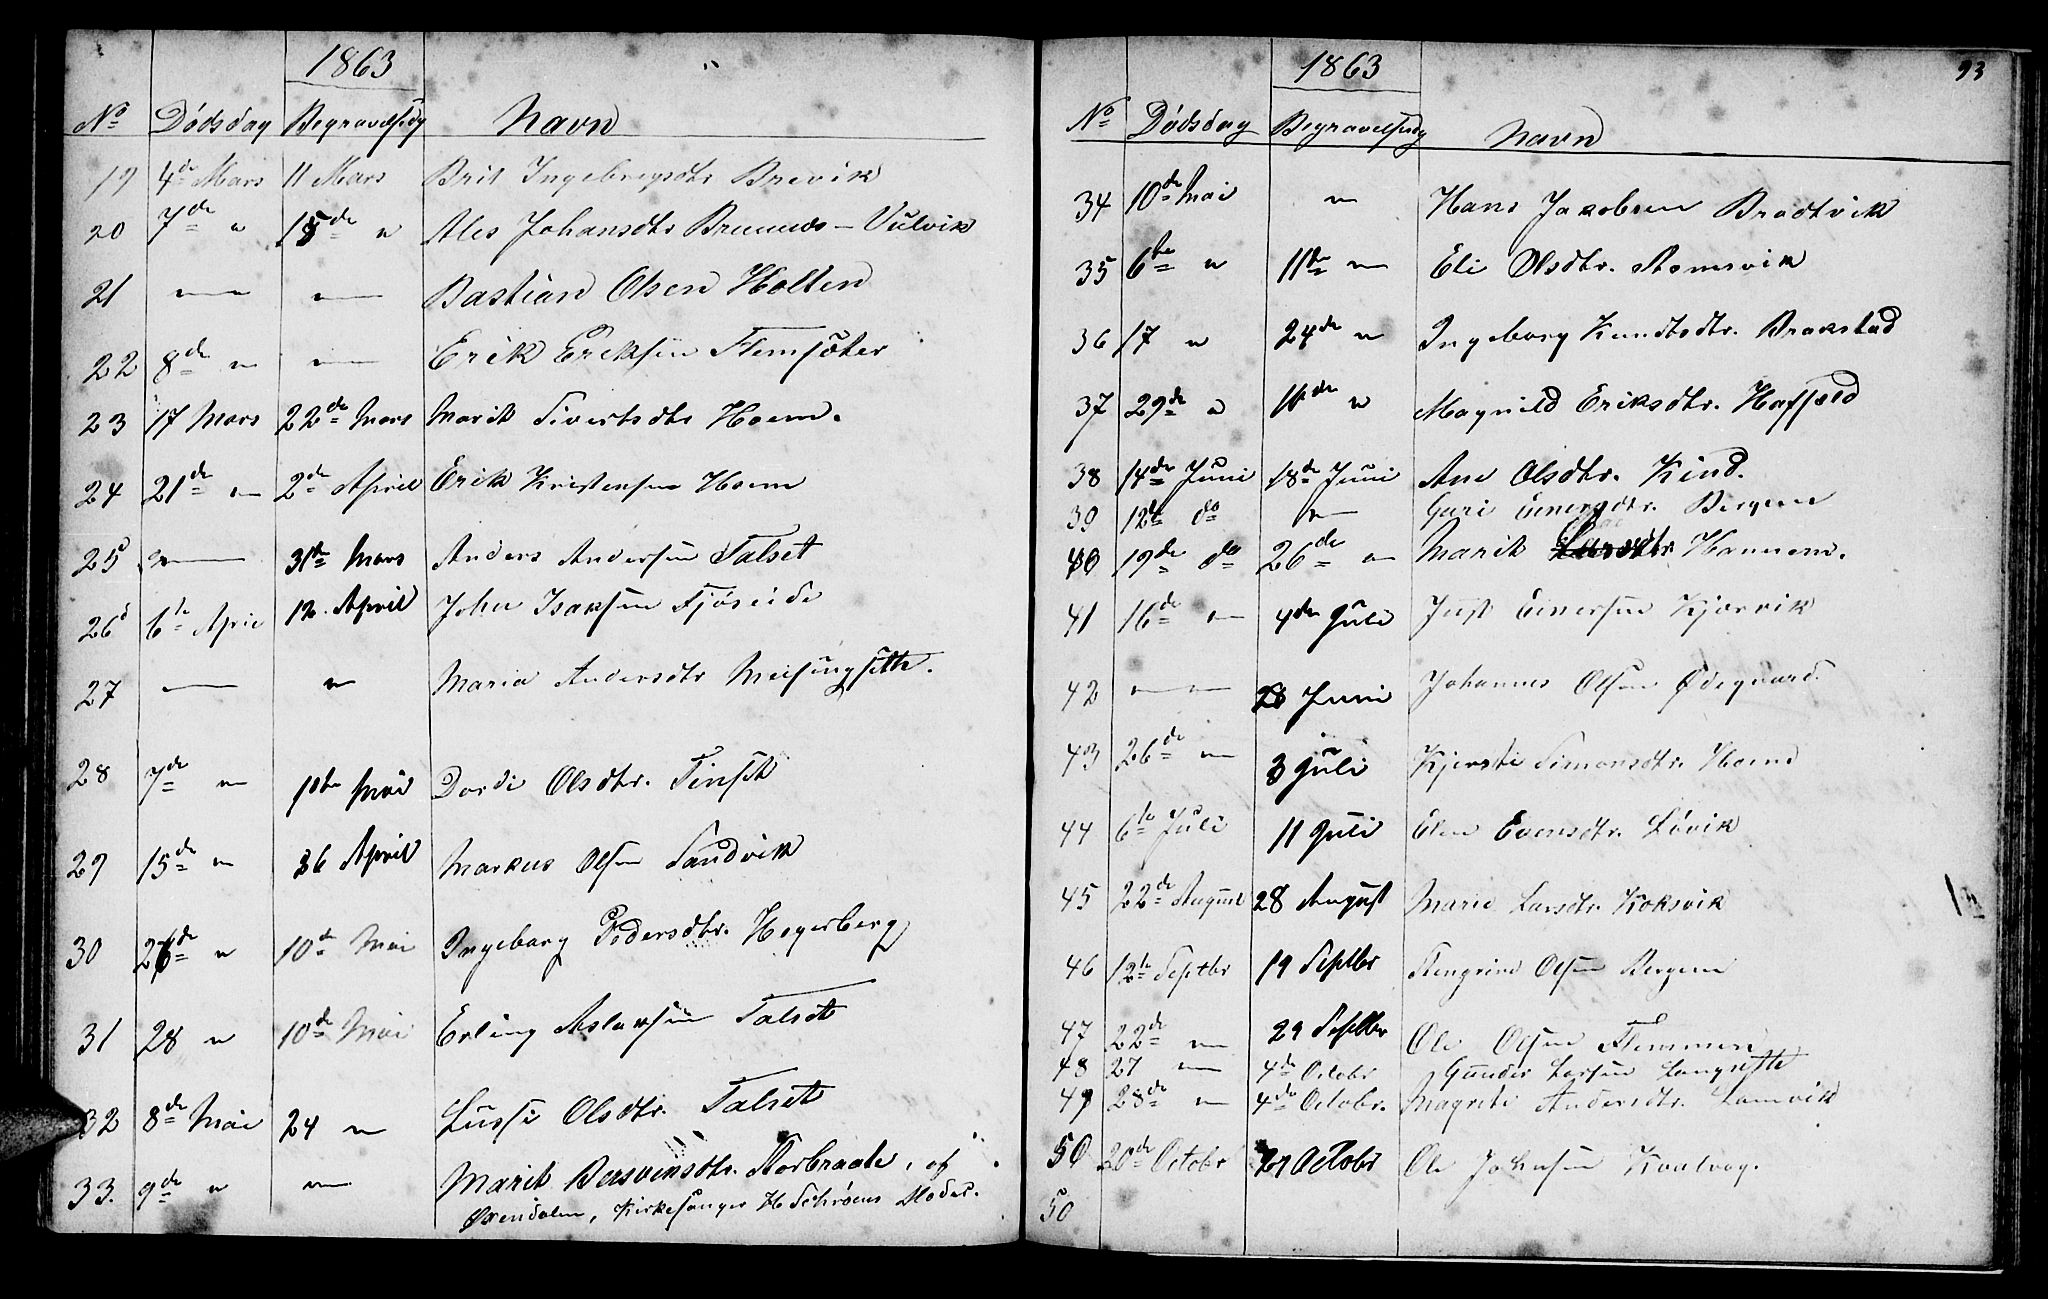 1863
No Dödsdag Begravelsdg Navn
19 4de Mars 11 Mars Brit Ingebregsdtr Brevik
20 7de " 15de " Ales Johansdtr Brunnds - Vulvik
21 — — Bastian Olsen Holten
22 8de " — Erik Eriksen Stemsæter
23 17 Mars 22de Mars Marit Sivertsdtr Hoem.
24 21de " 2de April Erik Kristensen Hoem
25 — 31te Mars Anders Andersen Talset
26 6te April 12. April John Isaksen Fjöseide
27 — " Maria Andersdtr Meisingseth.
28 7de " 10de Mai Dordi Olsdtr. Tinset
29 15de " 26 April Markus Olsen Sandvik
30 26de " 10de Mai Ingeborg Pedersdtr. Hegerberg
31 28 " 10de Mai Erling Aslaksen Talset
32 8de Mai 24 " Lussi Olsdtr. Talset
33. 9de " " Marit Besvensdtr. Storbraate, af
Öxendalen, Kirkesanger H. Schröens Moder.
1863
93
No Dödsdag Begravelsdg Navn
34 10de Mai " Hans Jakobsen Bradtvik
35 6te " 11te " Eli Olsdtr. Aamsvik
36 17 " 24de " Ingeborg Knudtsdtr. Brakstad
37 29de " Magnild Eriksdtr. Hafsæld
38 14de Juni 18de Juni Ane Olsdtr. Kind.
39 12te do " Guri Einersdtr. Bergem
40 19de do 26de " Marit Hannem.
41 16de " 4de Juli Just Einersen Kjørvik
42 " " 28 Juni Johannes Olsen Ödegaard.
43 26de " 3 Juli Kjersti Simonsdtr. Hoem
44 6te Juli 11 Juli Elen Evensdtr. Lövik
45 22de August 28 August Marie Larsdtr. Koksvik
46 12te Septbr 19 Septbr Stengrim Olsen Bergem
47 22de " 29 Septbr Ole Olsen Flemmen
48 27 " 4de Octobr Gunder Larsen Langsette
49 28de " 4de Octobr. Magrete Andersdtr. Lamvik
50 20de Octobr 29 Octobr Ole Johnsen Kvalvag.
50